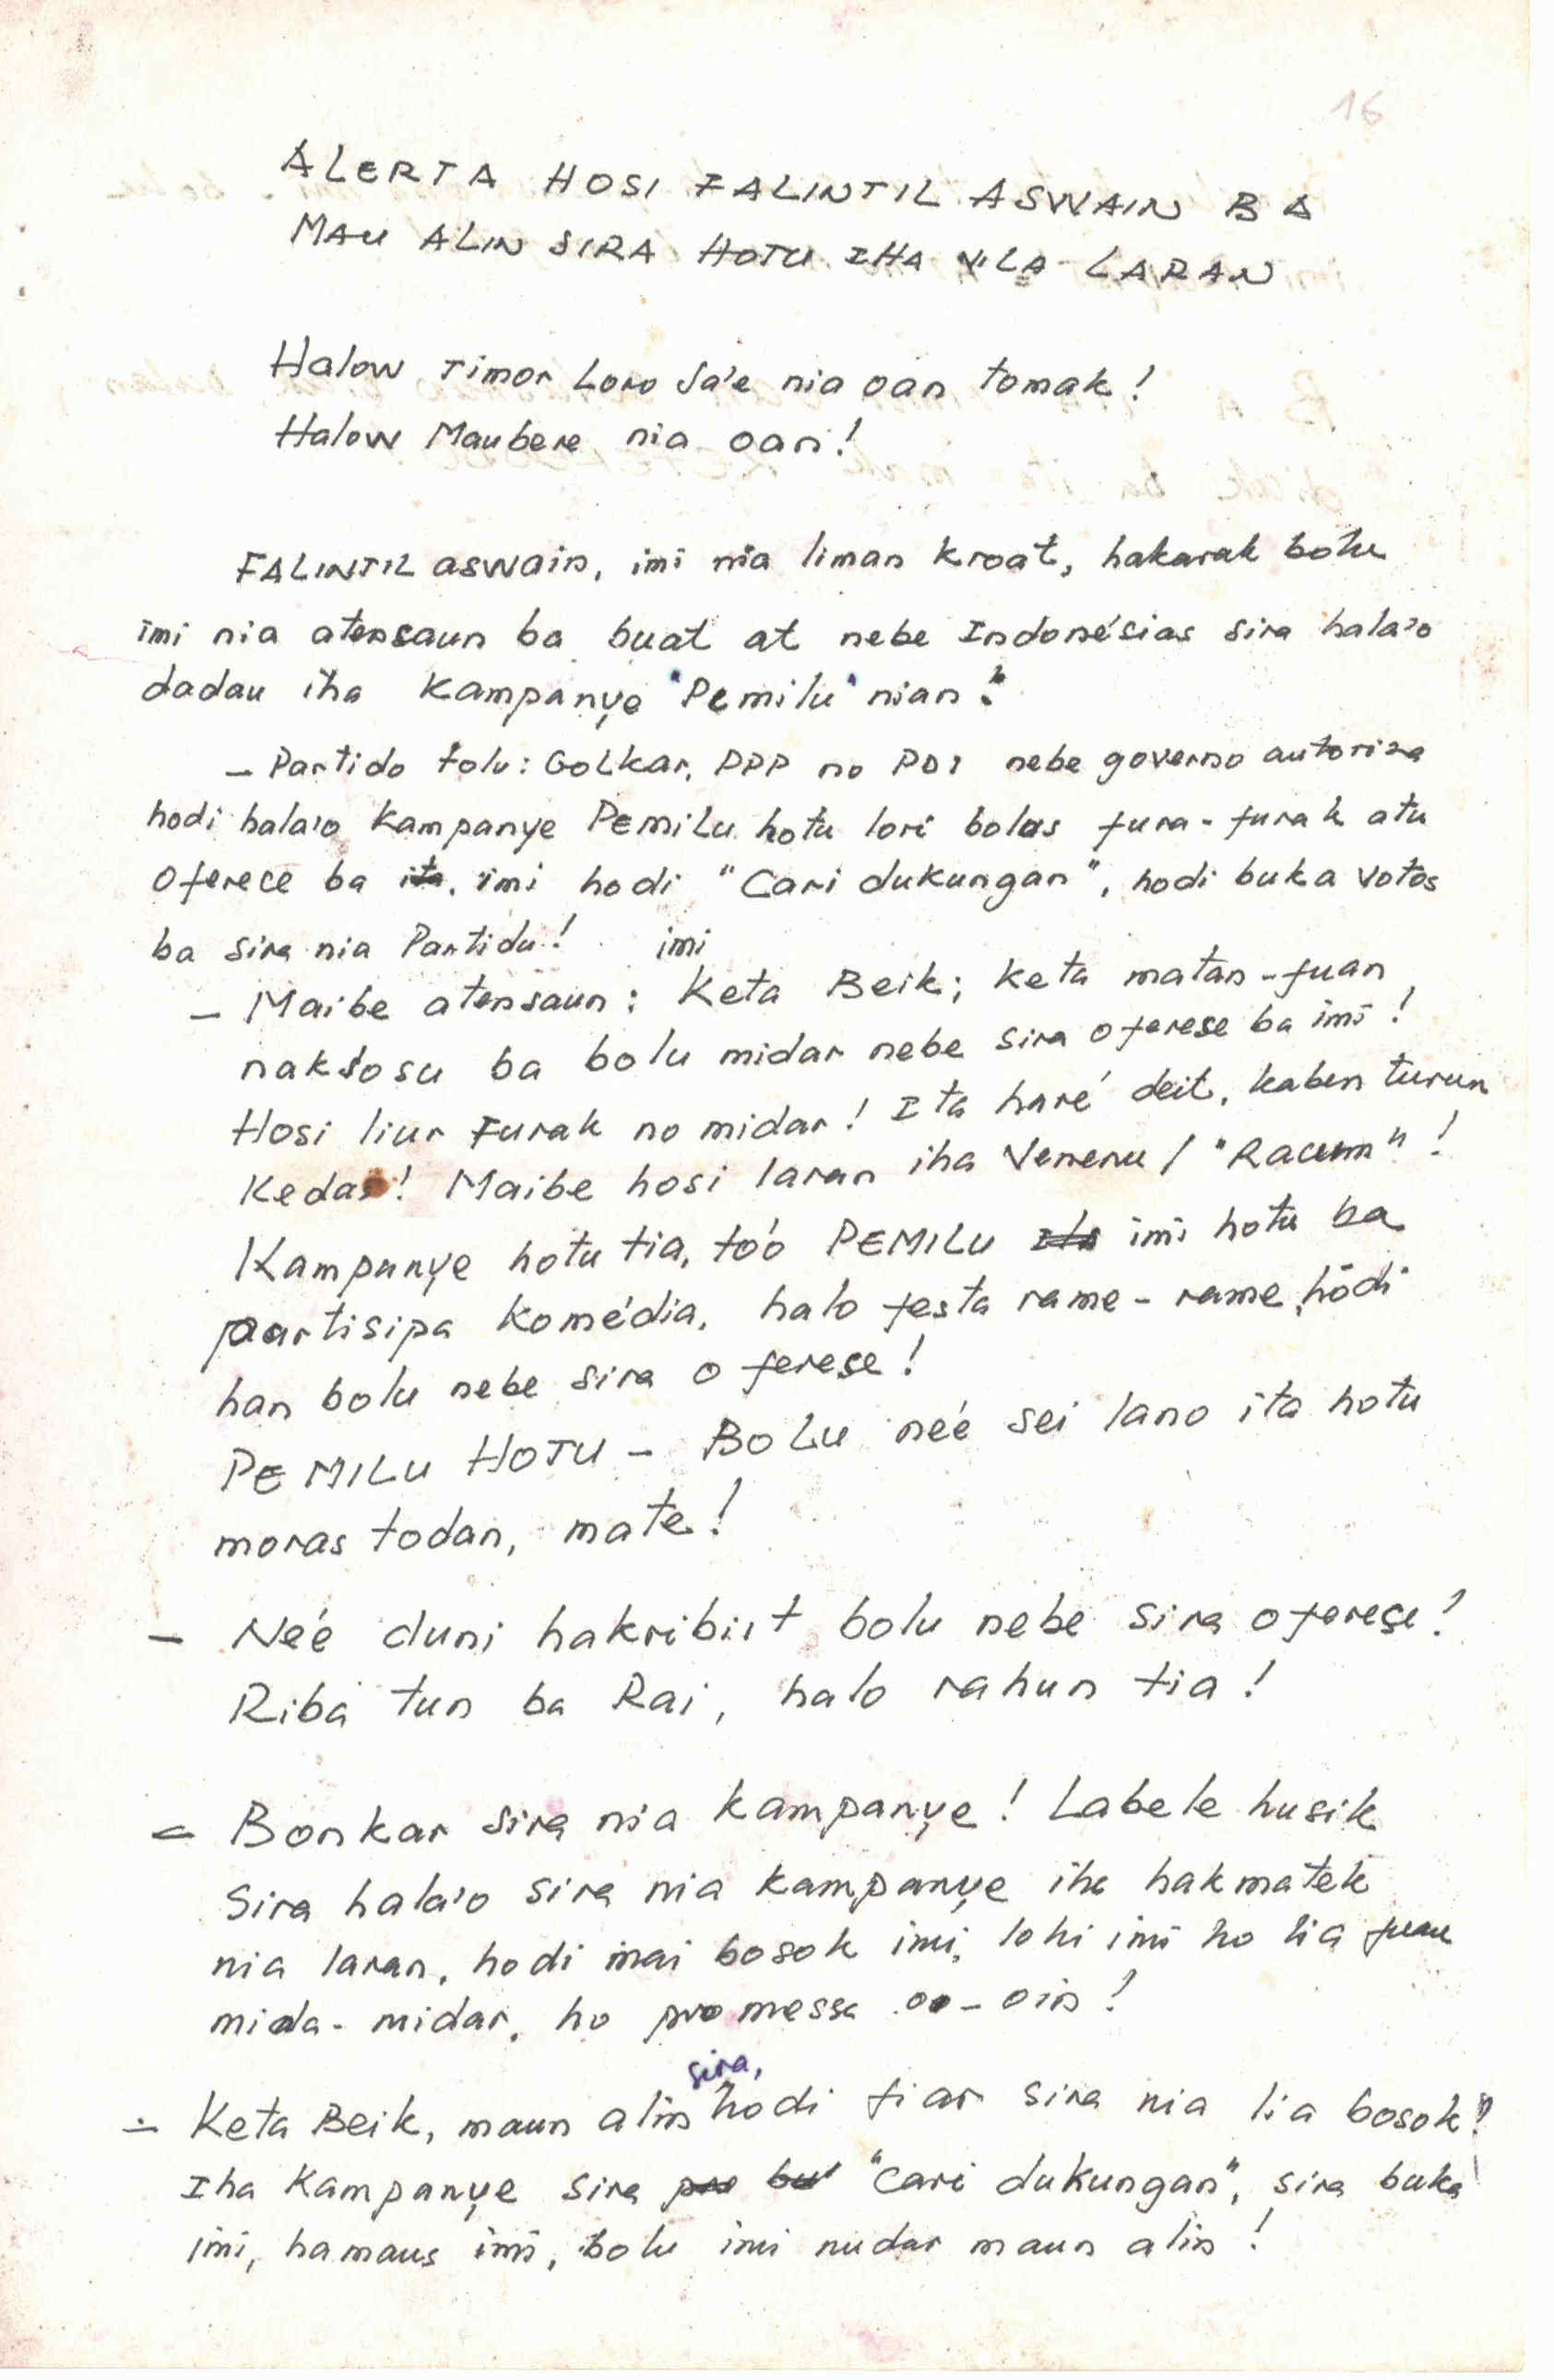 16
ALERTA HOSI FALINTIL ASWAIN BA
MAU ALIN SIRA HOTU IHA VILA LARAN
Halow Timor Loro Sa'e nia oan tomak!
Halow Maubere nia oan!
FALINTIL aswain, imi nia liman kroat, hakarak bolu
imi nia atensaun ba buat at nebe Indonésias sira hala'o
dadau iha Kampanye "Pemilu" nian:
- Partido tolu: GOLkar, PPP no PDI nebe governo autoriza
hodi hala'o Kampanye PemiLu hotu lori bolus fura-furak atu
oferece ba ita, imi hodi "Cari dukungan", hodi buka votos
ba sira nia Partidu!
imi
- Maibe atensaun: Keta Beik; keta matan-fuan
naksosu ba bolu midar nebe sira oferese ba imi!
Hosi liur Furak no midar! Ita haré deit, kaben turun
Kedas! Maibe hosi laran iha Venenu / "Racum"!
Kampanye hotu tia, to'o PEMILU ita imi hotu ba
partisipa komédia, halo festa rame-rame, hodi
han bolu nebe sira oferese!
PEMILU HOTU - BOLU ne'e sei lano ita hotu
moras todan, mate!
- Ne'e duni hakribiit bolu nebe sira oferese!
Riba tun ba Rai, halo rahun tia!
- Bonkar sira nia kampanye! Labele husik
Sira hala'o sira nia kampanye iha hakmatek
nia laran, hodi mai bosok imi, lohi imi ho lia fuan
mida-midar, ho promessa oo-oin!
sira,
- Keta Beik, maun alin hodi fiar sira nia lia bosok!
Iha Kampanye sira "cari dukungan", sira buka
imi, hamaus imi, bolu imi nudar maun alin!